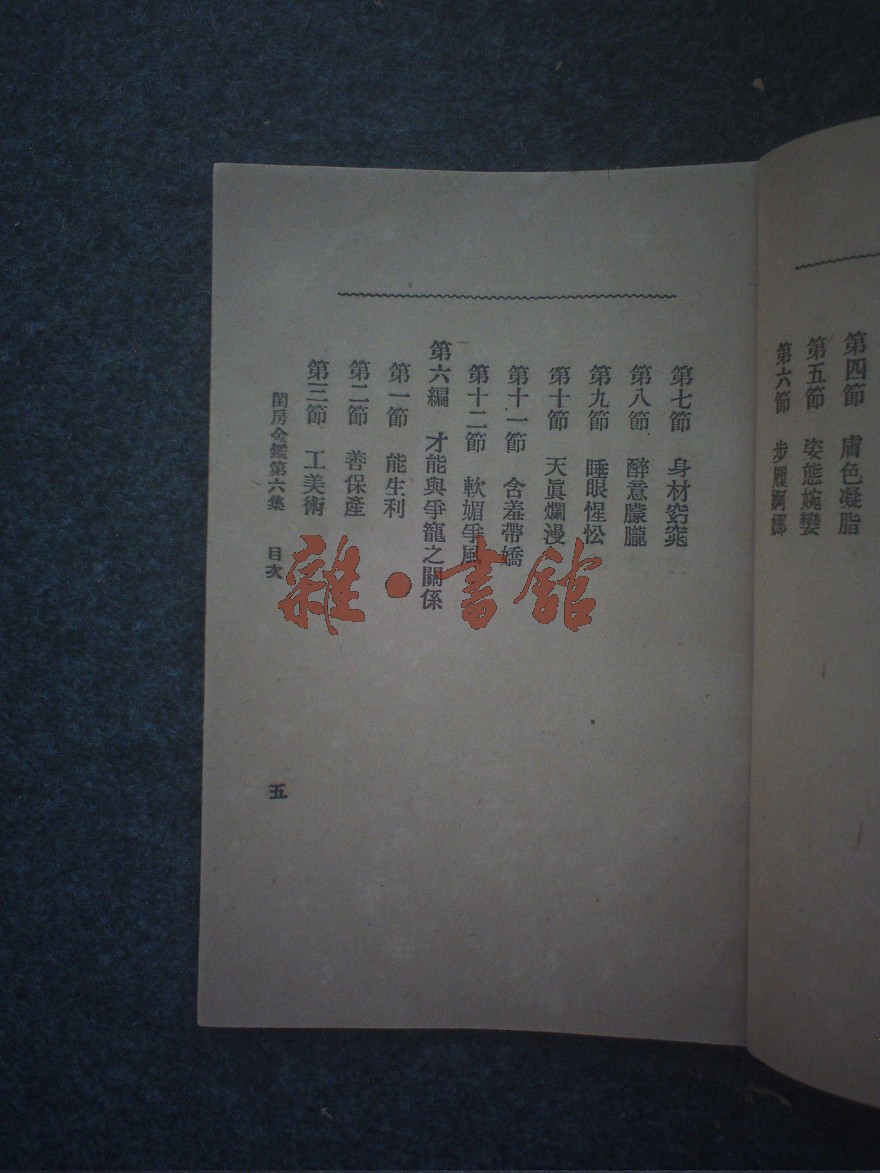 第四節　膚色凝脂
第五節　姿態婉孌
第六節　步履婀娜
第七節　身材窈窕
第八節　醉意朦朧
第九節　睡眼惺忪
第十節　天眞爛漫
第十一節　含羞帶嬌
第十二節　軟媚爭風
第六編　才能與爭寵之關係
第一節　能生利
第二節　善保產
第三節　工美術
閨房金鑑第六集　目次
五
雜·書館